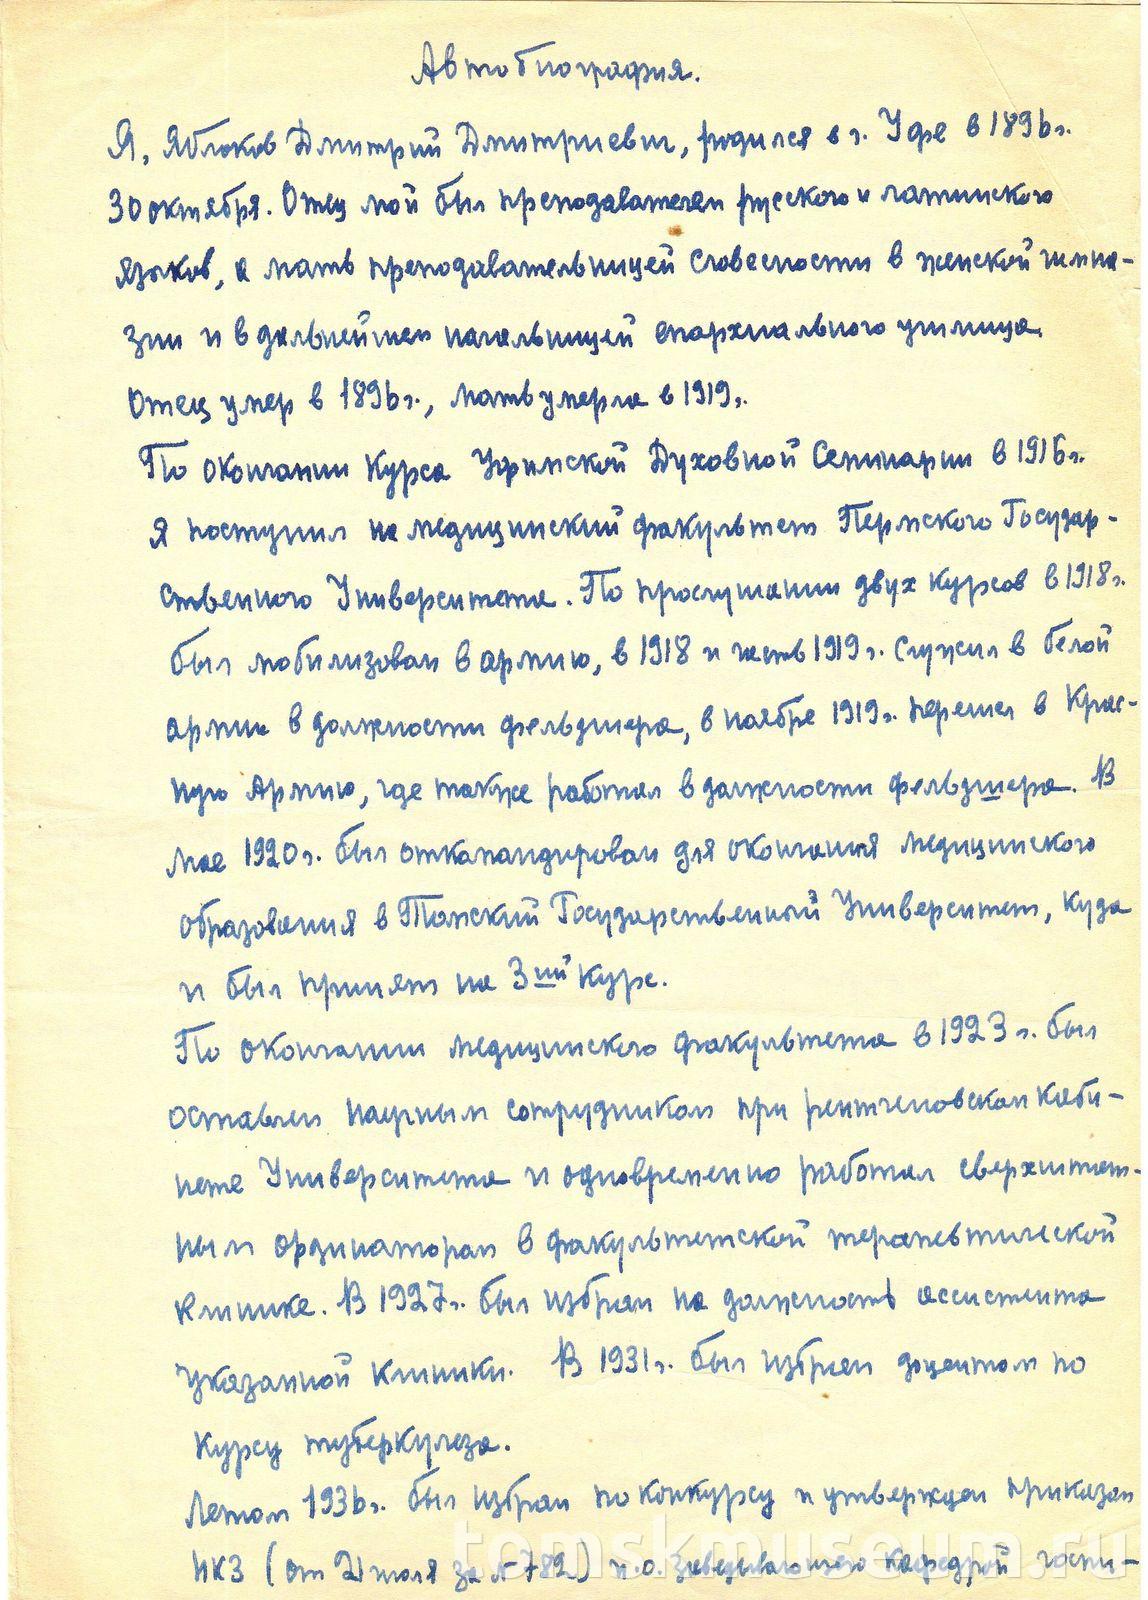 Автобиография.
Я, Яблоков Дмитрий Дмитриевич, родился в г. Уфе в 1896г.
30 октября. Отец мой был преподавателем русского и латинского
языков, а мать преподавательницей словесности в женской гимна-
зии и в дальнейшем начальницей епархиального училища.
Отец умер в 1896г., мать умерла в 1919г.
По окончании курса Уфимской Духовной Семинарии в 1916г.
я поступил на медицинский факультет Пермского Государ-
ственного Университета. По прослушании двух курсов в 1918г.
был мобилизован в армию, в 1918 и часть 1919г. служил в белой
армии в должности фельдшера, в ноябре 1919г. перешел в Крас-
ную Армию, где также работал в должности фельдшера. В
мае 1920г. был откомандирован для окончания медицинского
образования в Томский Государственный Университет, куда
и был принят на 3ий курс.
По окончании медицинского факультета в 1923г. был
оставлен научным сотрудником при рентгеновском каби-
нете Университета и одновременно работал сверхштат-
ным ординатором в факультетской терапевтической
клинике. В 1927г. был избран на должность ассистента
указанной клиники. В 1931г. был избран доцентом по
курсу туберкулеза.
Летом 1936г. был избран по конкурсу и утвержден приказом
НКЗ (от 2 июля за № 782) и.о. заведывающего кафедрой госпи-
tomskmuseum.ru